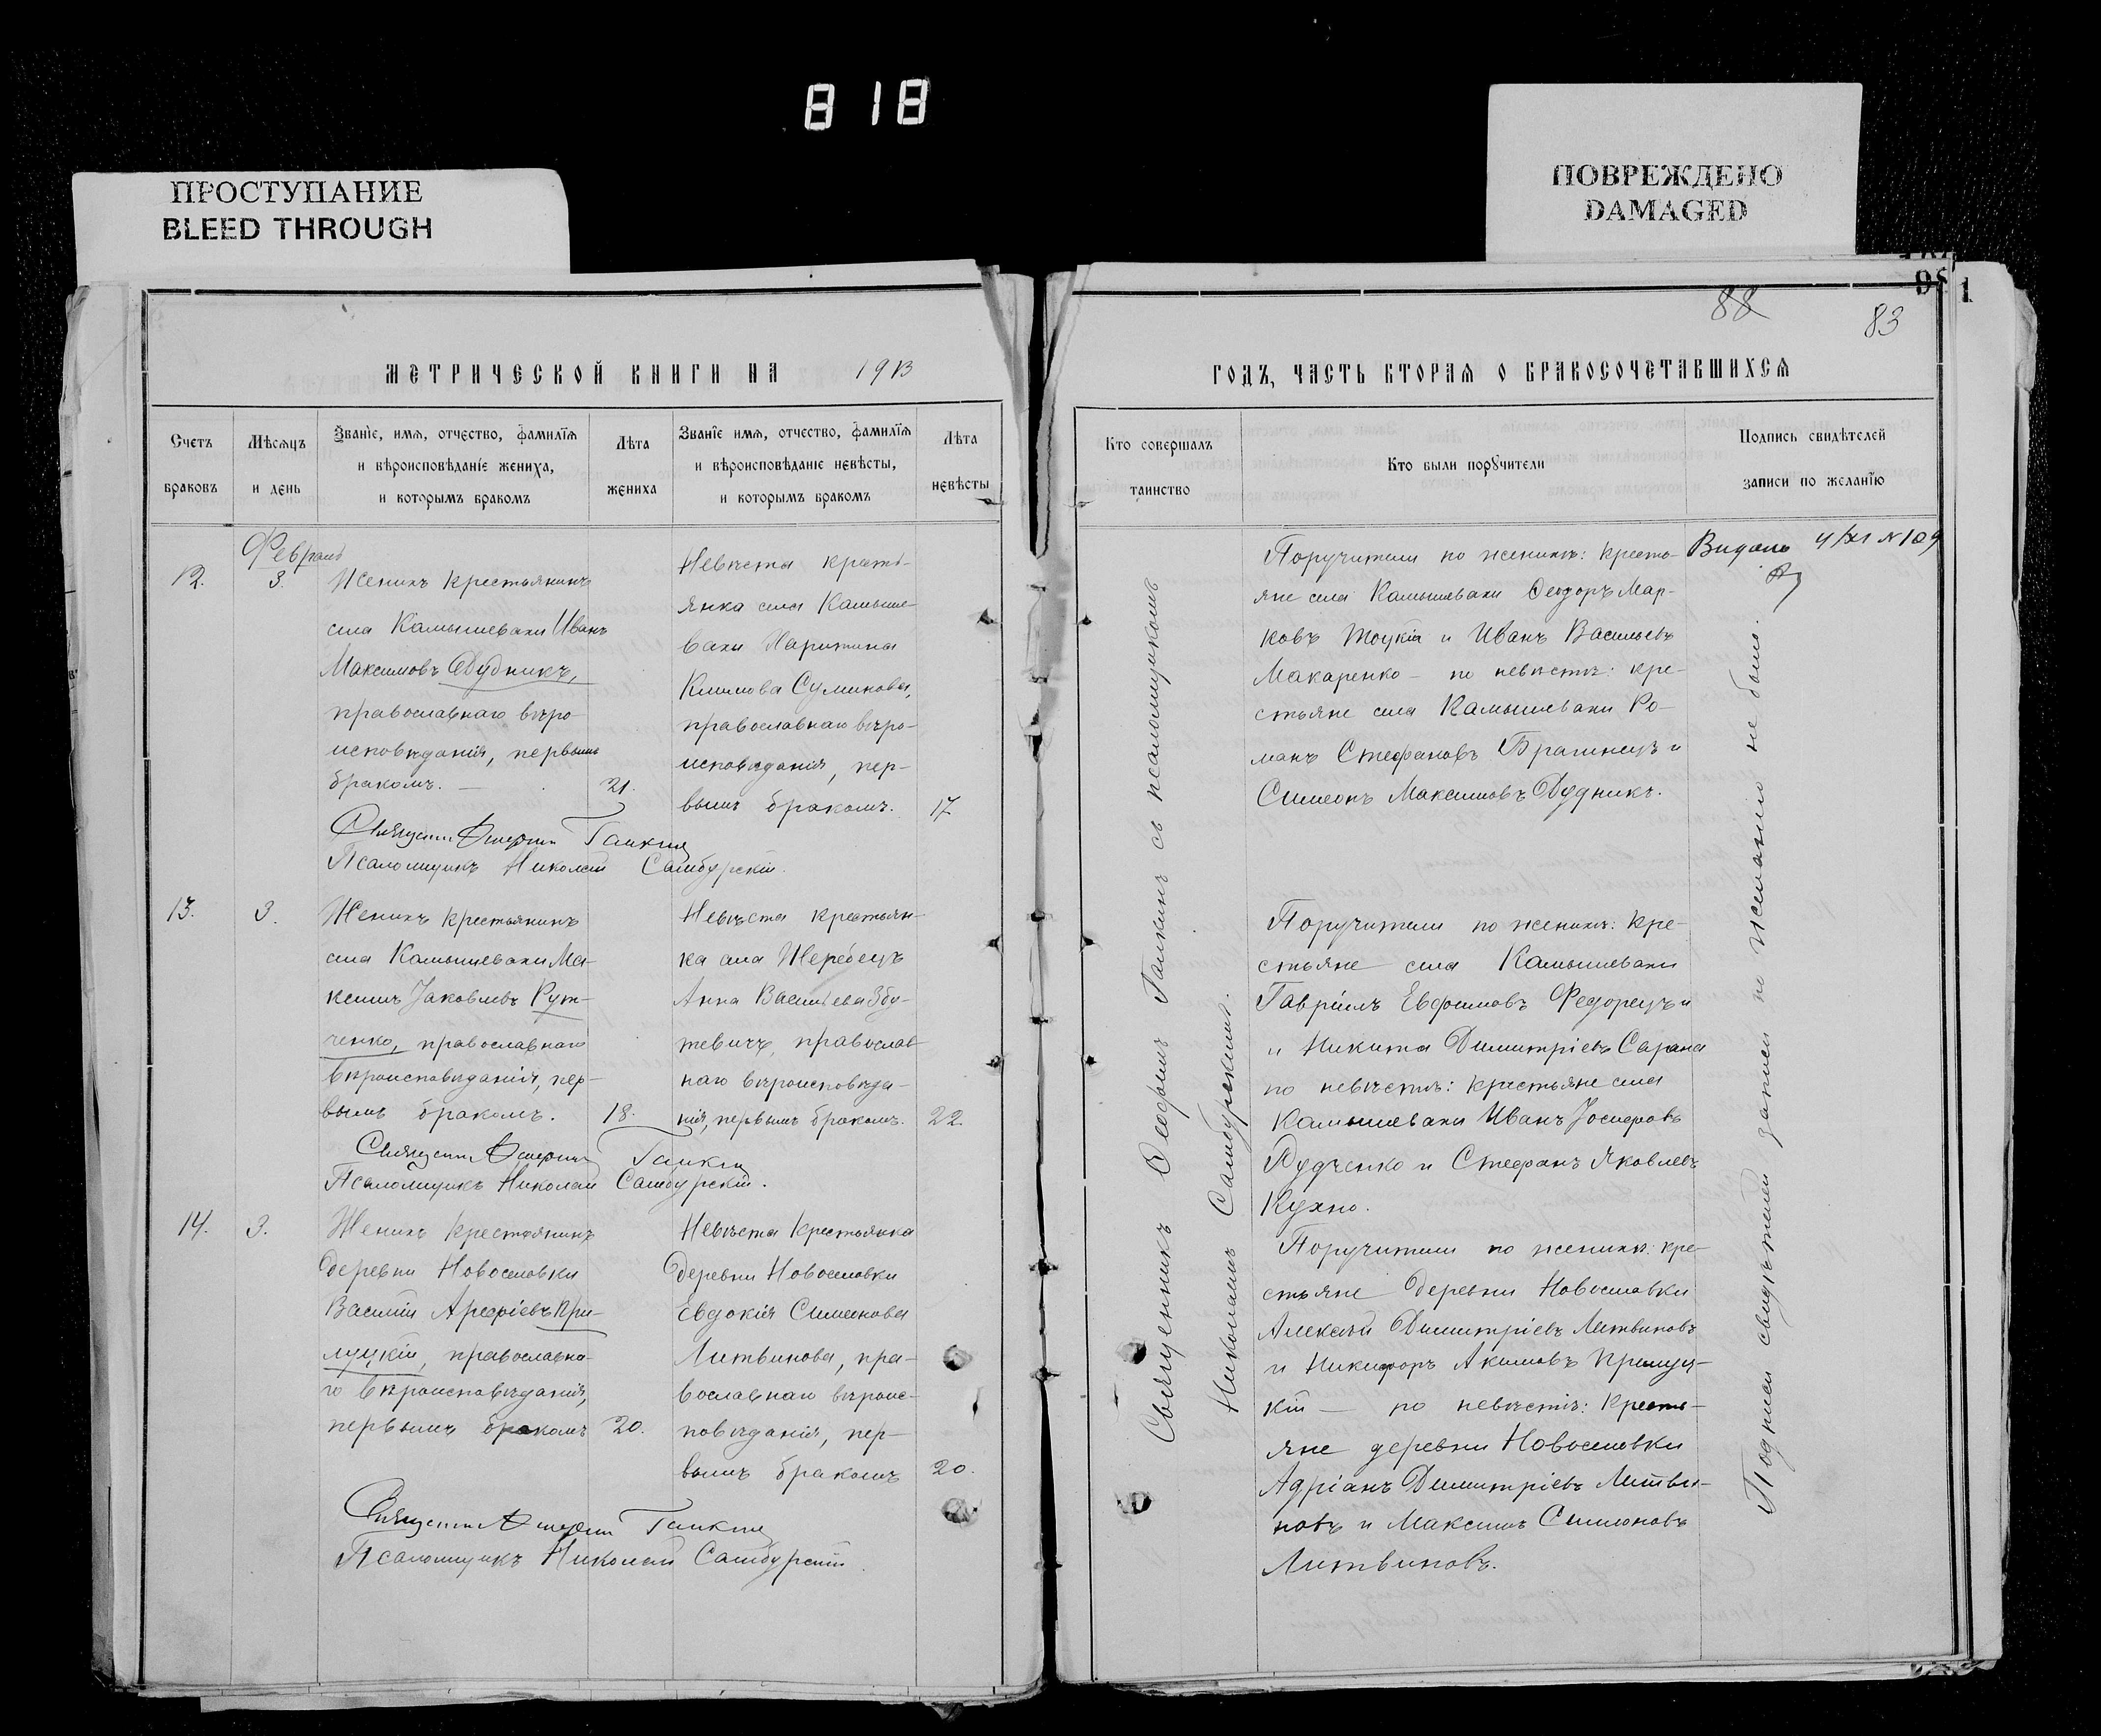 818
ПРОСТУПАНИЕ
BLEED THROUGH
ПОВРЕЖДЕНО
DAMAGED
88
83
МЕТРИЧЕСКОЙ КНИГИ НА 1913
ГОДЪ, ЧАСТЬ ВТОРАЯ О БРАКОСОЧЕТАВШИХСЯ
Счетъ браковъ
Мѣсяцъ и день
Званіе, имя, отчество, фамилія и вѣроисповѣданіе жениха, и которымъ бракомъ
Лѣта жениха
Званіе имя, отчество, фамилія и вѣроисповѣданіе невѣсты, и которымъ бракомъ
Лѣта невѣсты
Кто совершалъ таинство
Кто были поручители
Подпись свидѣтелей записи по желанію
Февраль
12.
3.
Женихъ крестьянинъ
села Камышевахи Иванъ
Максимовъ Дудникъ,
православнаго вѣро-
исповѣданія, первымъ
бракомъ. —
21.
Невѣста кресть-
янка села Камыше-
вахи Харитина
Климова Сумикова,
православнаго вѣро-
исповѣданія, пер-
вымъ бракомъ.
17
Поручители по женихѣ: кресть-
яне села Камышевахи Ѳеодоръ Мар-
ковъ и Иванъ Васильевъ
Макаренко — по невѣстѣ: кре-
стьяне села Камышевахи Ро-
манъ Стефановъ Брагинецъ и
Симеонъ Максимовъ Дудникъ.
4/XI №109
Галкинъ
Псаломщикъ Николай Самбурскій.
13.
3.
Женихъ крестьянинъ
села Камышевахи Ма-
ксимъ Іаковлевъ Рут-
ченко, православнаго
вѣроисповѣданія, пер-
вымъ бракомъ.
18.
Невѣста крестьян-
ка села Жеребецъ
Анна Васильева Збу-
жевичъ, православ-
наго вѣроисповѣда-
нія, первымъ бракомъ.
22.
Поручители по женихѣ: кре-
стьяне села Камышевахи
Гавріилъ Евфимовъ Федорецъ и
и Никита Димитріевъ Сарана
по невѣстѣ: крестьяне села
Камышевахи Иванъ Іосифовъ
Рудченко и Стефанъ Яковлевъ
Кухно.
Галкинъ
Псаломщикъ Николай Самбурскій.
14.
3.
Женихъ крестьянинъ
деревни Новоселовки
Василій Арефіевъ При-
луцкій, православна-
го вѣроисповѣданія,
первымъ бракомъ
20.
Невѣста крестьянка
деревни Новоселовки
Евдокія Симеонова
Литвинова, пра-
вославнаго вѣроис-
повѣданія, пер-
вымъ бракомъ
20.
Поручители по женихѣ: кре-
стьяне деревни Новоселовки
Алексѣй Димитріевъ Литвиновъ
и Никифоръ Акимовъ Прилуц-
кій — по невѣстѣ: кресть-
яне деревни Новоселовки
Адріанъ Димитріевъ Литви-
новъ и Максимъ Симеоновъ
Литвиновъ.
Галкинъ
Псаломщикъ Николай Самбурскій
Священникъ Ѳеофилъ Галкинъ съ псаломщикомъ
Николаемъ Самбурскимъ.
Подписи свидѣтелей записи по желанію не было.